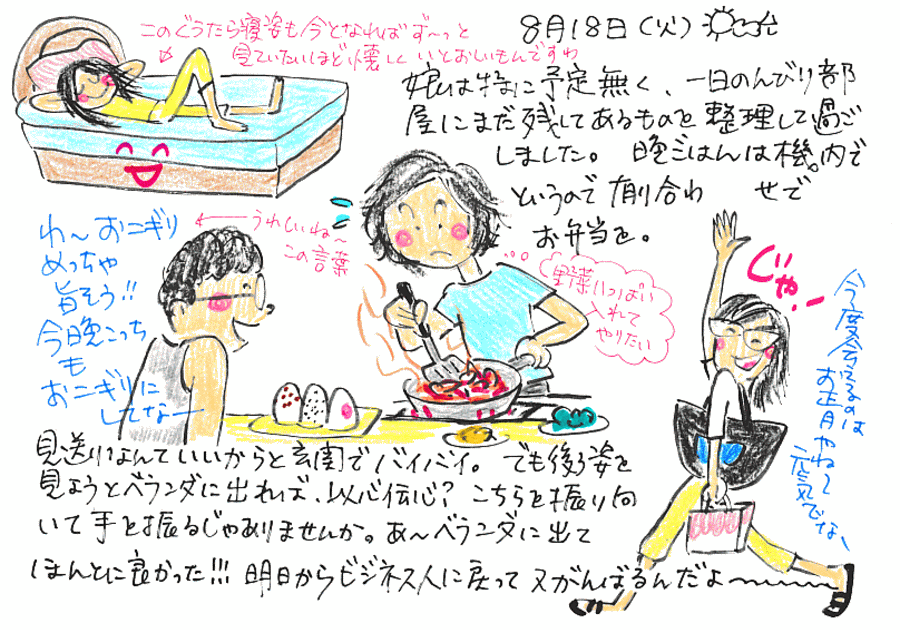 8月18日(火)
このぐうたら寝姿も今となればず〜っと
見ていたいほど懐しくいとおしいもんですわ
娘は特に予定無く、一日のんびり部
屋にまだ残してあるものを整理して過ご
しました。晩ごはんは機内で
というので有り合わせで
お弁当を。
うれしいね〜
この言葉
わ〜おニギリ
めっちゃ
旨そう!!
今晩こっち
も
おニギリに
してなー
野菜いっぱい
入れて
やりたい
じゃー
今度会えるのは
お正月やね〜
元気でな、
見送りなんていいからと玄関でバイバイ。でも後ろ姿を
見ようとベランダに出れば、以心伝心?こちらを振り向
いて手を振るじゃありませんか。あ〜ベランダに出て
ほんとに良かった!!!明日からビジネス人に戻って又がんばるんだよ〜